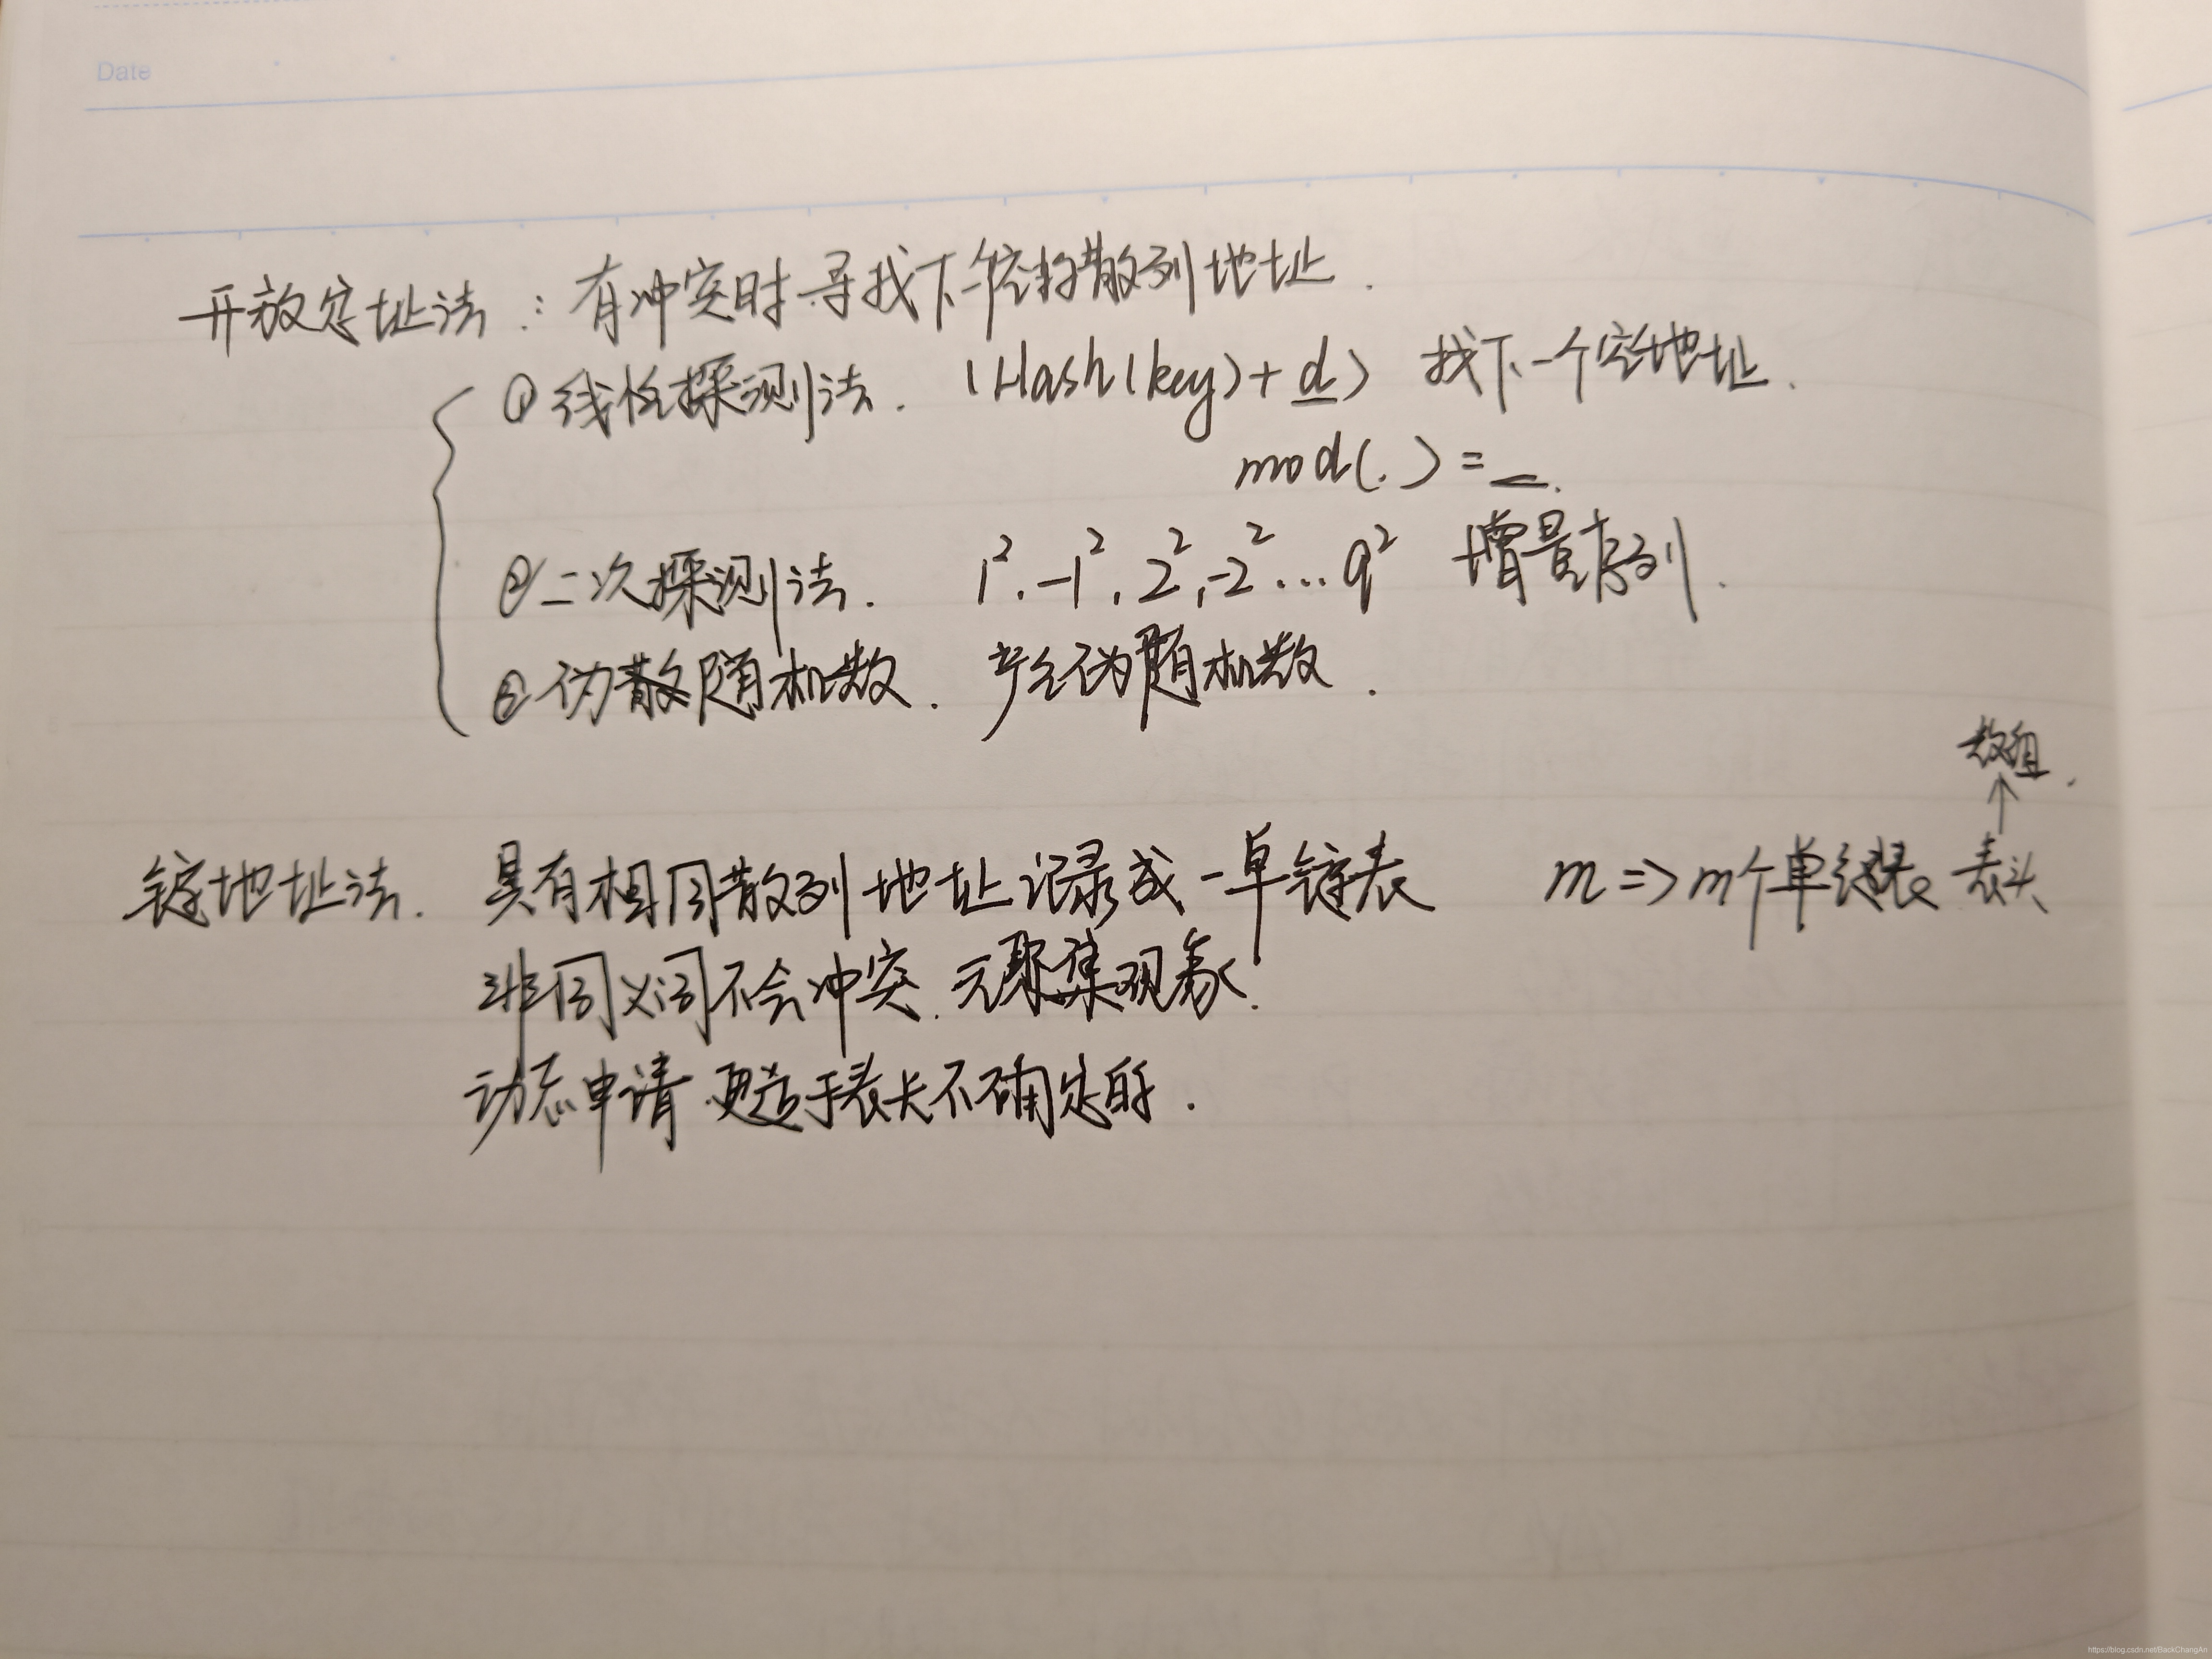 Date
开放定址法：有冲突时寻找下一个空的散列地址.
① 线性探测法. (Hash(key)+d) 找下一个空地址.
mod(.) = _.
② 二次探测法. 1², -1², 2², -2² ... q² 增量序列.
③ 伪随机数. 产生伪随机数.
数组.
↑
链地址法. 具有相同散列地址记录成一单链表 m => m个单链表 表头
非同义词不会冲突. 无聚集现象.
动态申请.更适于表长不确定的.
https://blog.csdn.net/BackChangAn